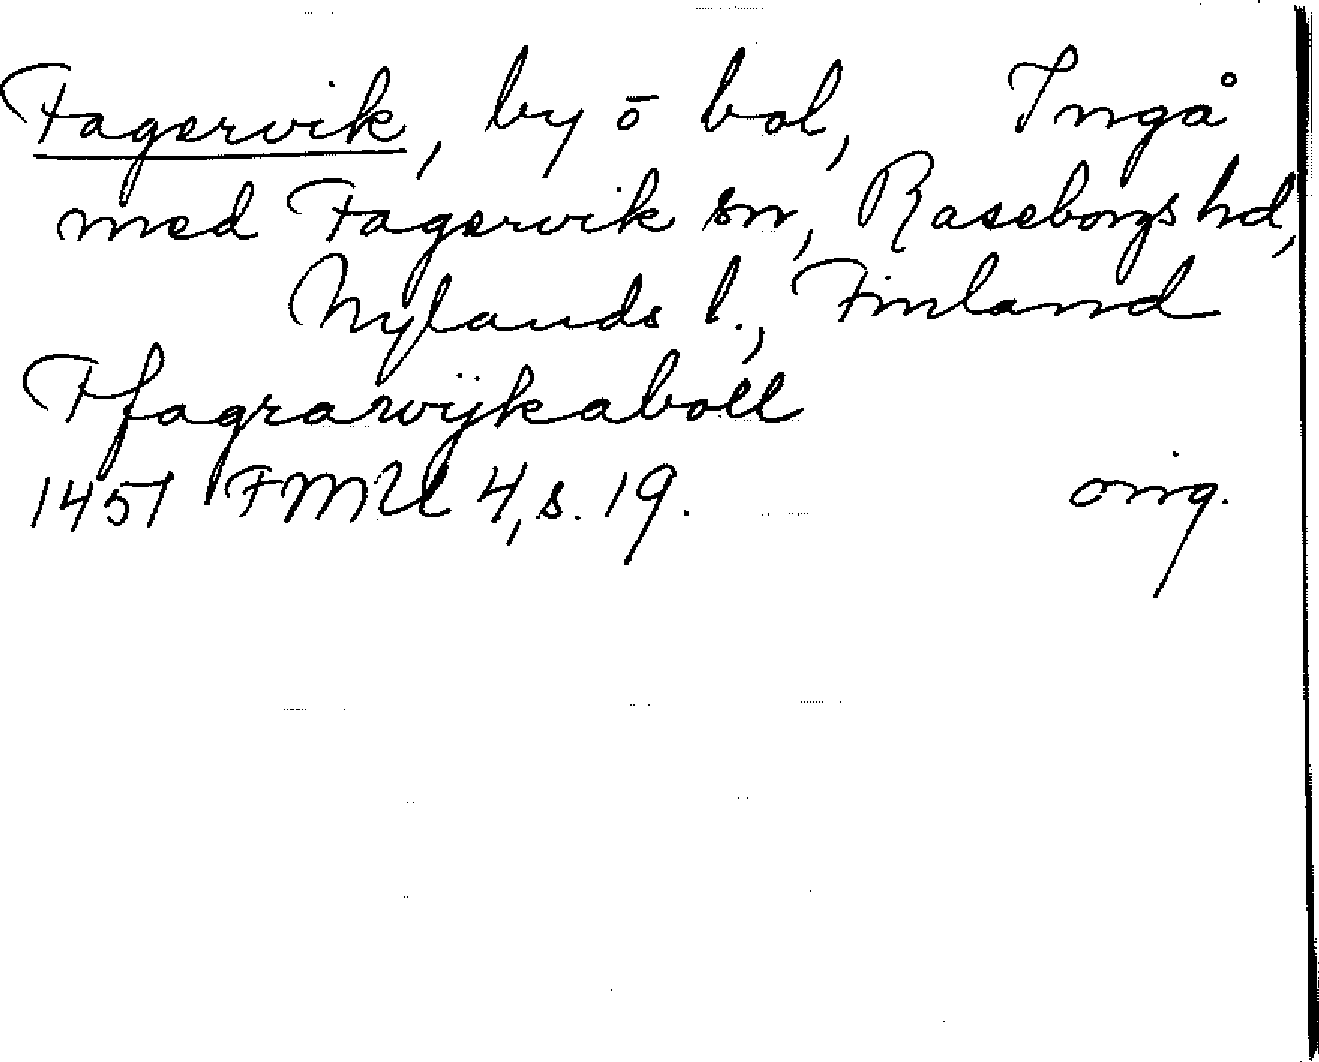 Fagervik, by o bol, Ingå
med Fagervik sn, Raseborgs hd,
Nylands l., Finland
Ffagrarwijkaboll
1451 FMU 4, s. 19. orig.